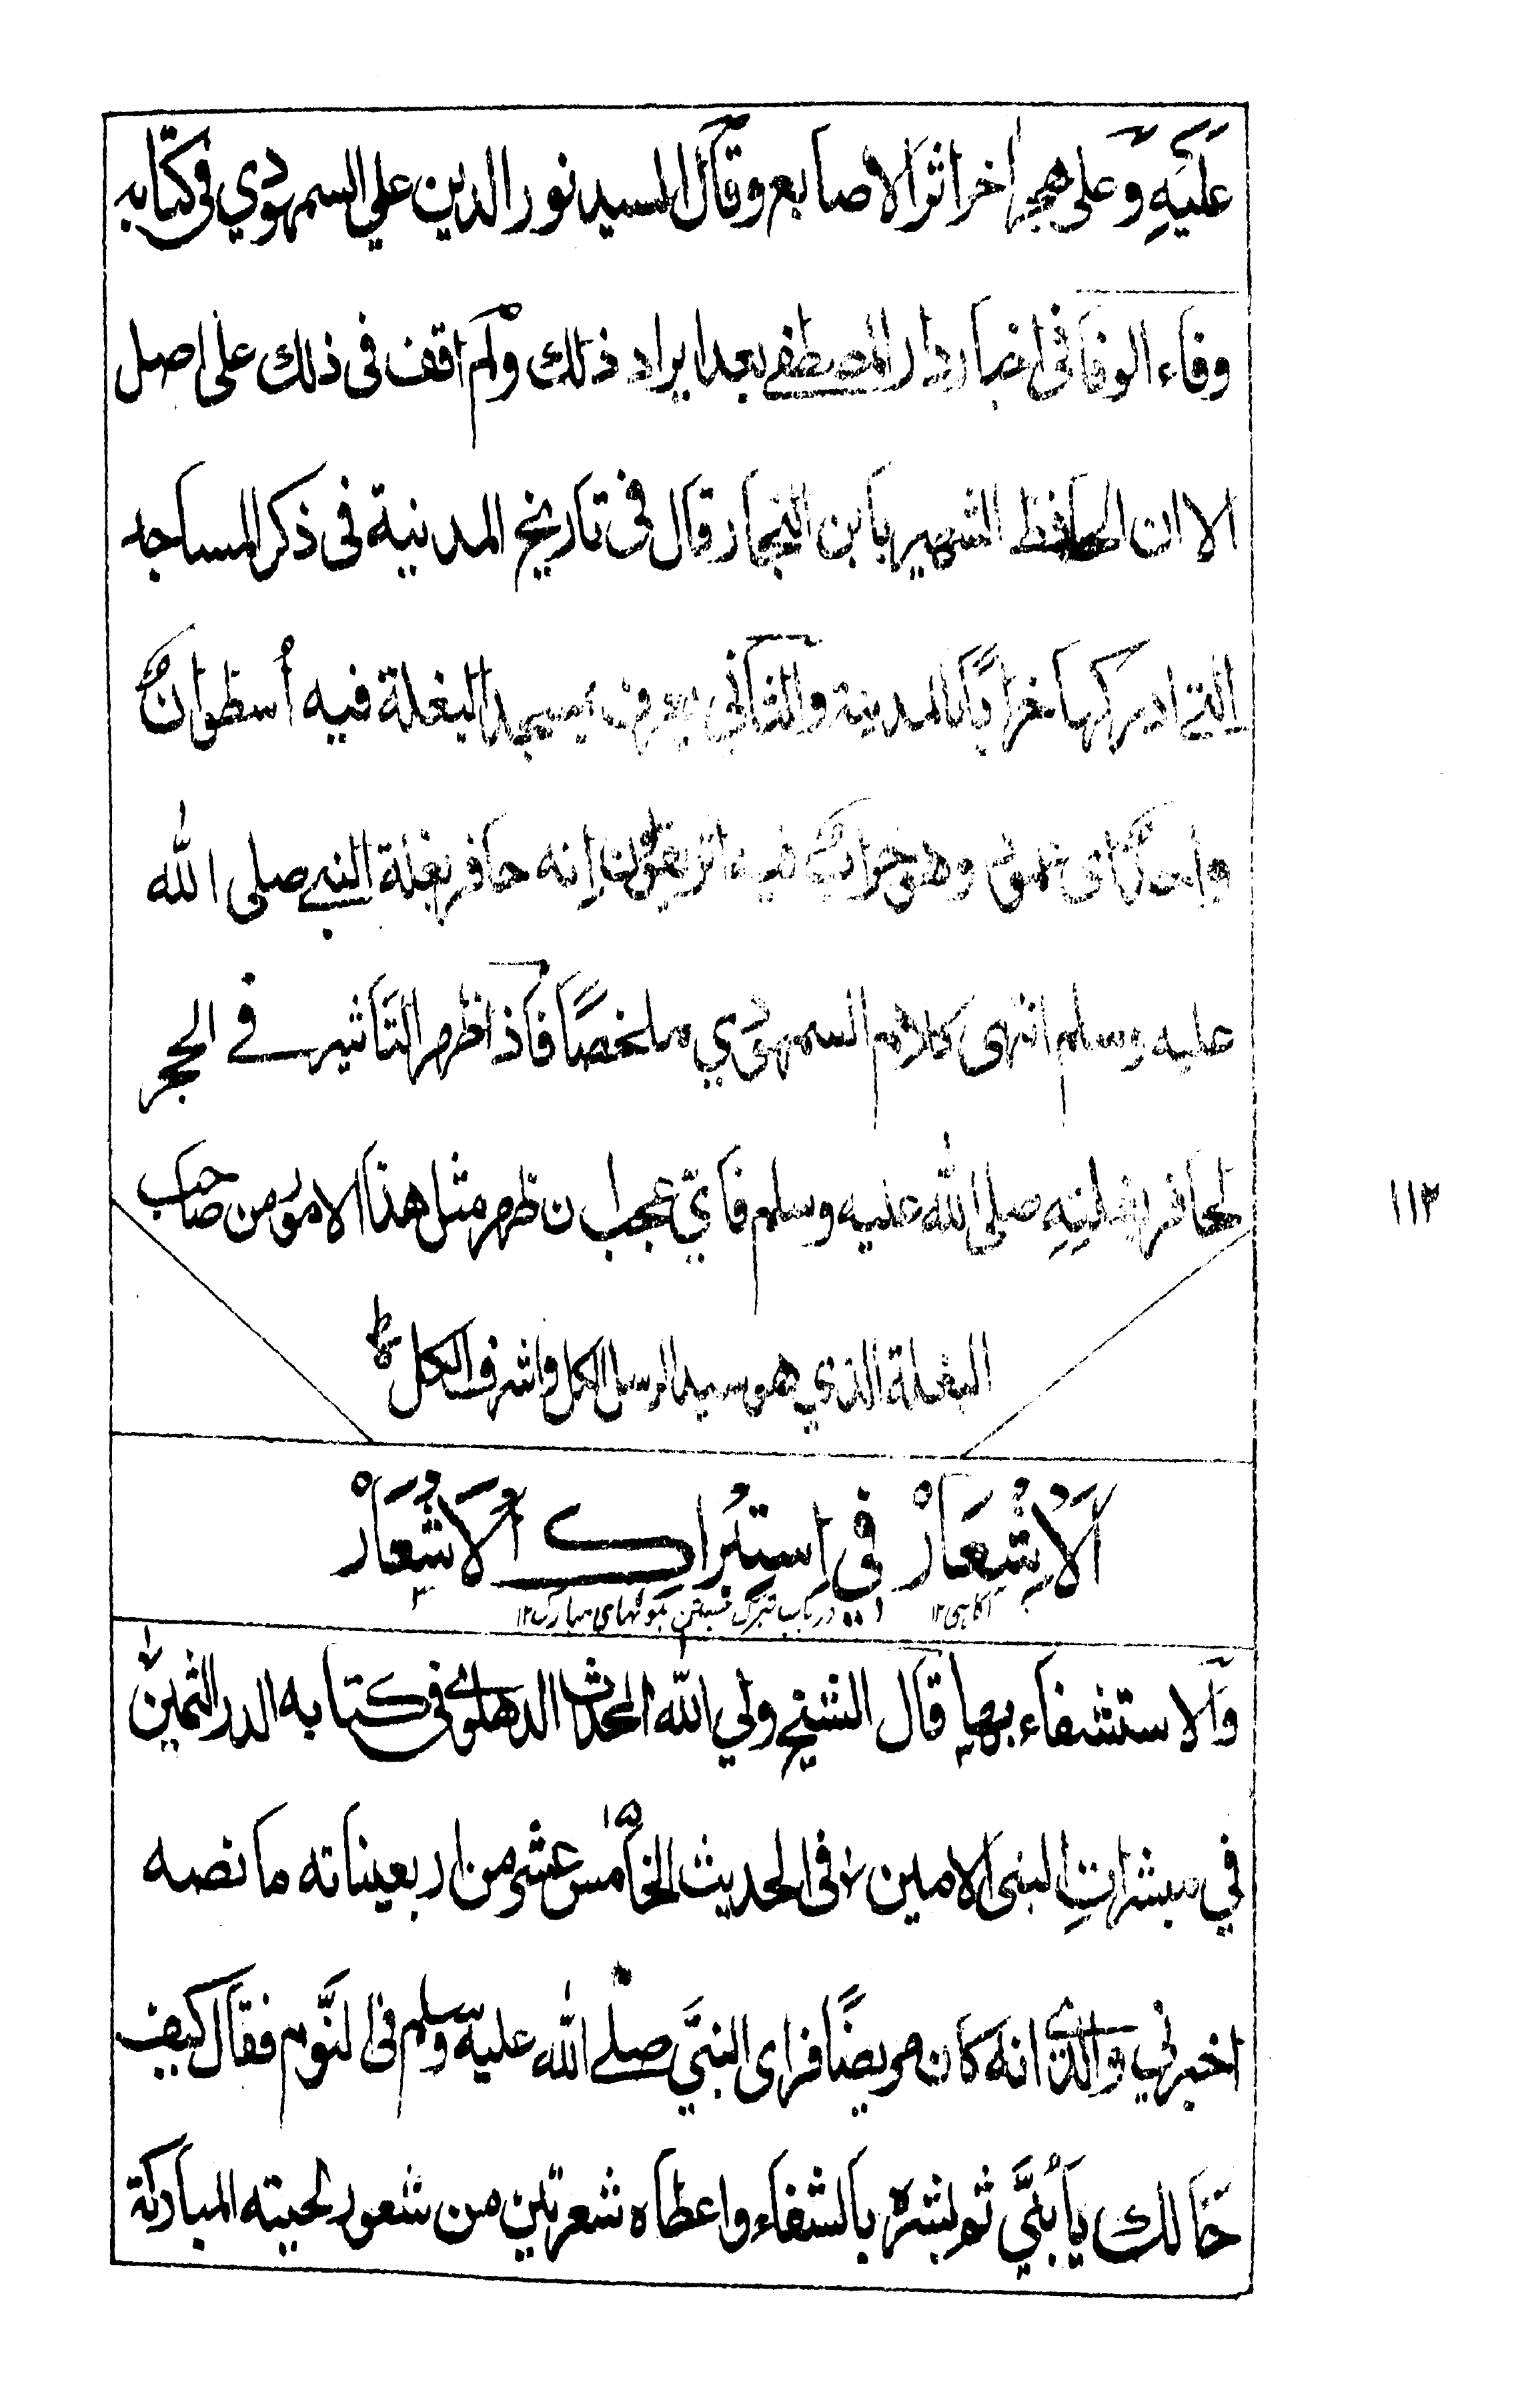 عَلَيْهِ وَعلى هجر اخر اثر الاصابع وقال السيد نور الدين علي السمهودي في كتابه
وفاء الوفا في اخبار دار المصطفے بعد ايراد ذلك ولم اقف فى ذلك على اصل
الا ان الحافظ الشهير بابن النجار قال فى تاريخ المدينة فى ذكر المساجد
التے ادركها خراباً بالمدينة والثاني يعرف بمسجد البغلة فيه أسطوان
واحد وهو خراب فيه اثر يقولون انه حافر بغلة النبے صلى الله
عليه وسلم انتهى كلام السمهودي ملخصًا فاذا ظهر التأثير فے الحجر
لحافر بغلته صلى الله عليه وسلم فأيّ عجب ان ظهر مثل هذا الامور من صاحب
البغلة الذي هو سيد الرسل الكل واشرف الكل
١١٣
اَلْاِشْعَارْ في اِستِبْراكِ الْاَشْعَارْ
آگاهی١٢ در باب تبرک جستن بموئهای مبارک١٢
وَالاستشفاء بها قال الشيخ ولي الله المحدث الدهلوي فى كتابه الدر الثمين
في مبشراتِ النبى الامين فى الحديث الخامس عشر ١٥ من اربعيناته ما نصه
اخبرني والدي انه كان مريضًا فراى النبيَّ صلے الله عليه وسلم فى النَّوم فقال كيف
حَالك يا بُنَيَّ ثم بشره بالشفاء واعطاه شعرتين من شعور لحيته المباركة